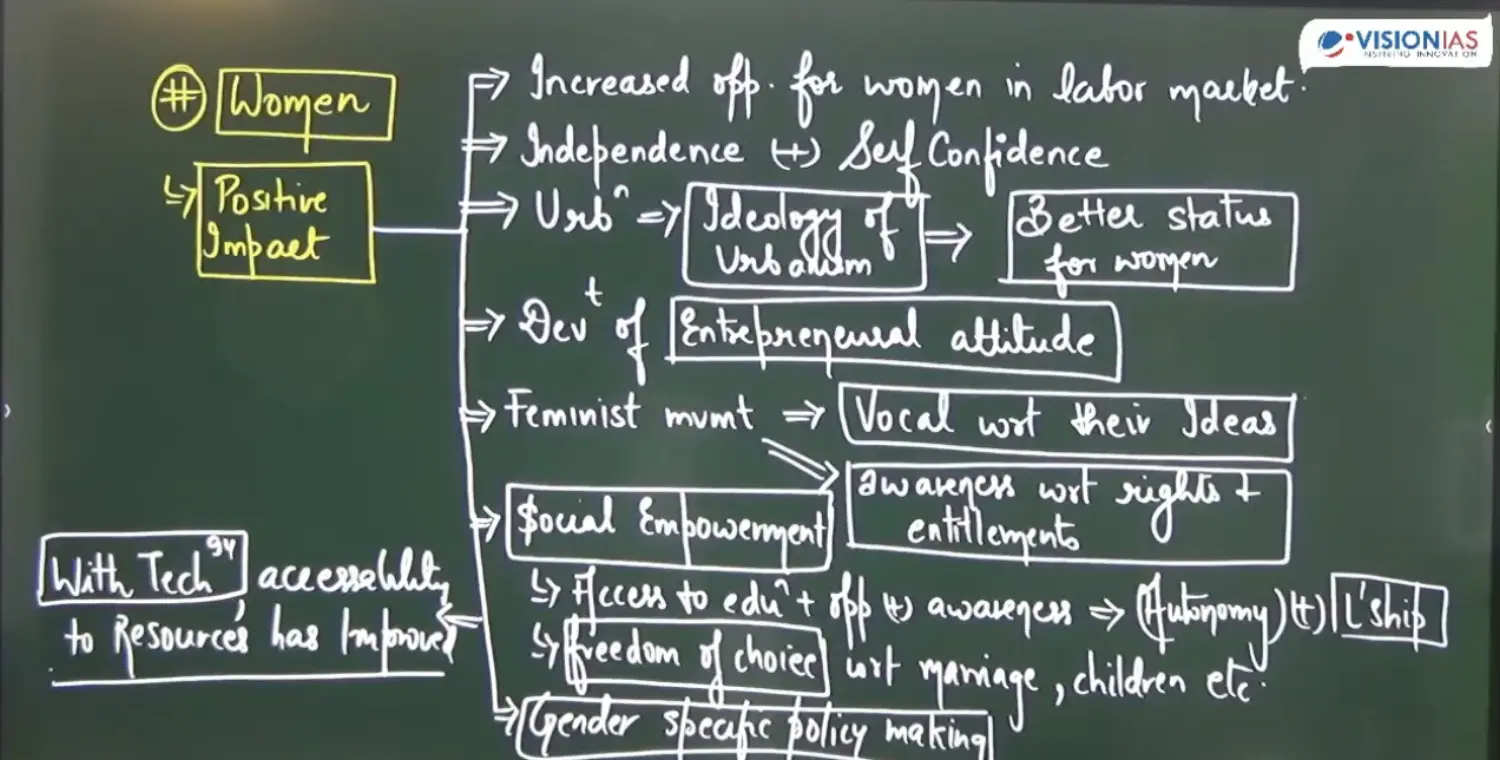 VISIONIAS
INSPIRING INNOVATION
# Women
↳ Positive
Impact
⇒ Increased opp. for women in labor market.
⇒ Independence (+) Self Confidence
⇒ Urbⁿ ⇒ Ideology of Urbanism ⇒ Better status for women
⇒ Devᵗ of Entrepreneural attitude
⇒ Feminist mvmt ⇒ Vocal wrt their Ideas
awareness wrt rights +
entitlements
⇒ Social Empowerment
↳ Access to eduⁿ + opp (+) awareness ⇒ (Autonomy) (+) L'ship
↳ freedom of choice wrt marriage, children etc.
⇒ Gender specific policy making
With Tech^gy accessability
to Resources has Improved